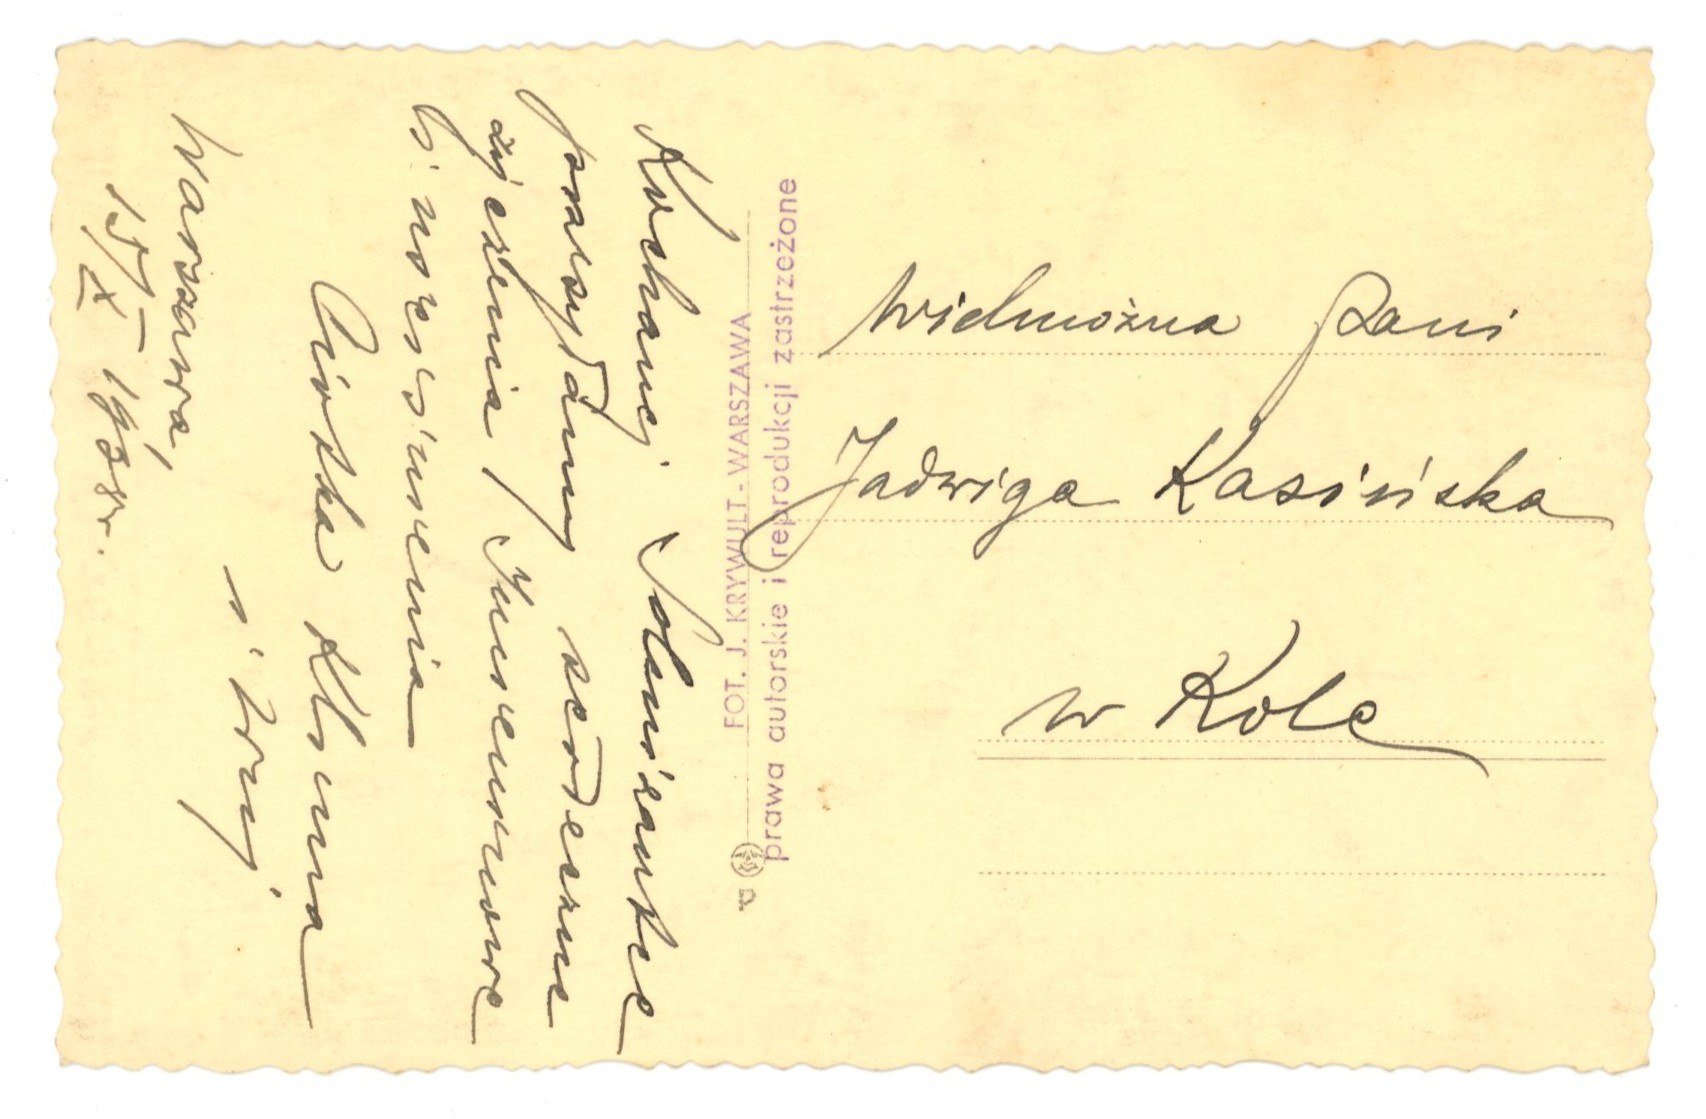 Kochanej Solenizantce
przesyłamy serdeczne
życzenia Imieninowe
i uściśnienia
Ciotka Klima
i
Warszawa,
15/X - 1938r.
FOT. J. KRYWULT - WARSZAWA
prawa autorskie i reprodukcji zastrzeżone
Wielmożna Pani
Jadwiga Kasińska
w Kole